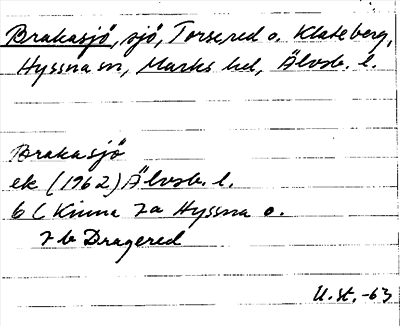 Brakasjö, sjö, Torsered o. Klateberg,
Hyssna sn, Marks hd, Älvsb. l.
Brakasjö
ek (1962) Älvsb. l.
6 C Kinna 7a Hyssna o.
7b Dragered
U. st. -63